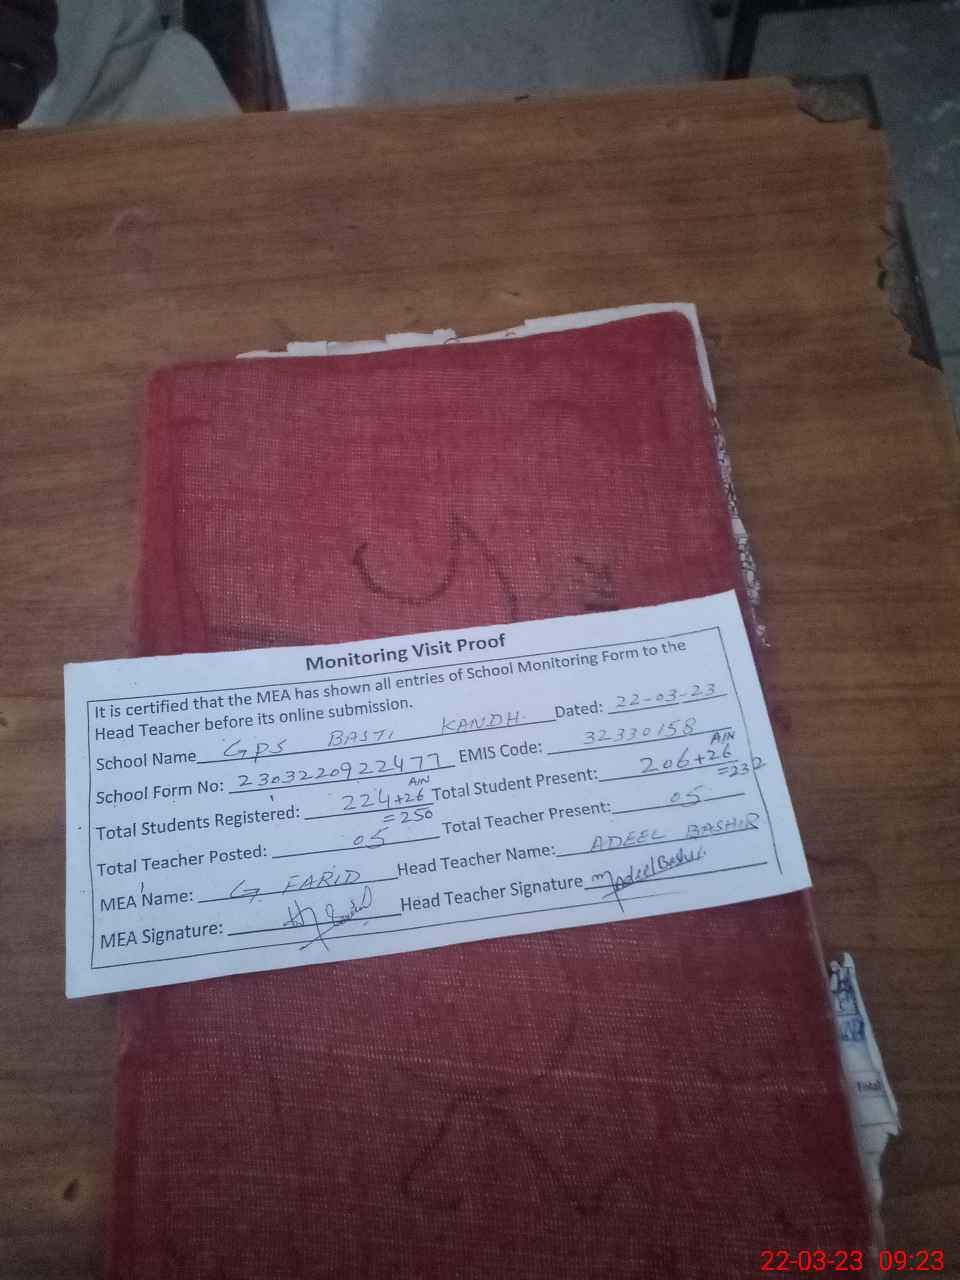 Monitoring Visit Proof
It is certified that the MEA has shown all entries of School Monitoring Form to the
Head Teacher before its online submission.
School Name GPS BASTI KANDH. Dated: 22-03-23
School Form No: 2303220922477 EMIS Code: 32330158
Total Students Registered: 224+26 A/N =250 Total Student Present: 206+26 A/N =232
Total Teacher Posted: 05 Total Teacher Present: 05
MEA Name: G. FARID Head Teacher Name: ADEEL BASHIR
MEA Signature: Head Teacher Signature
Total
22-03-23 09:23